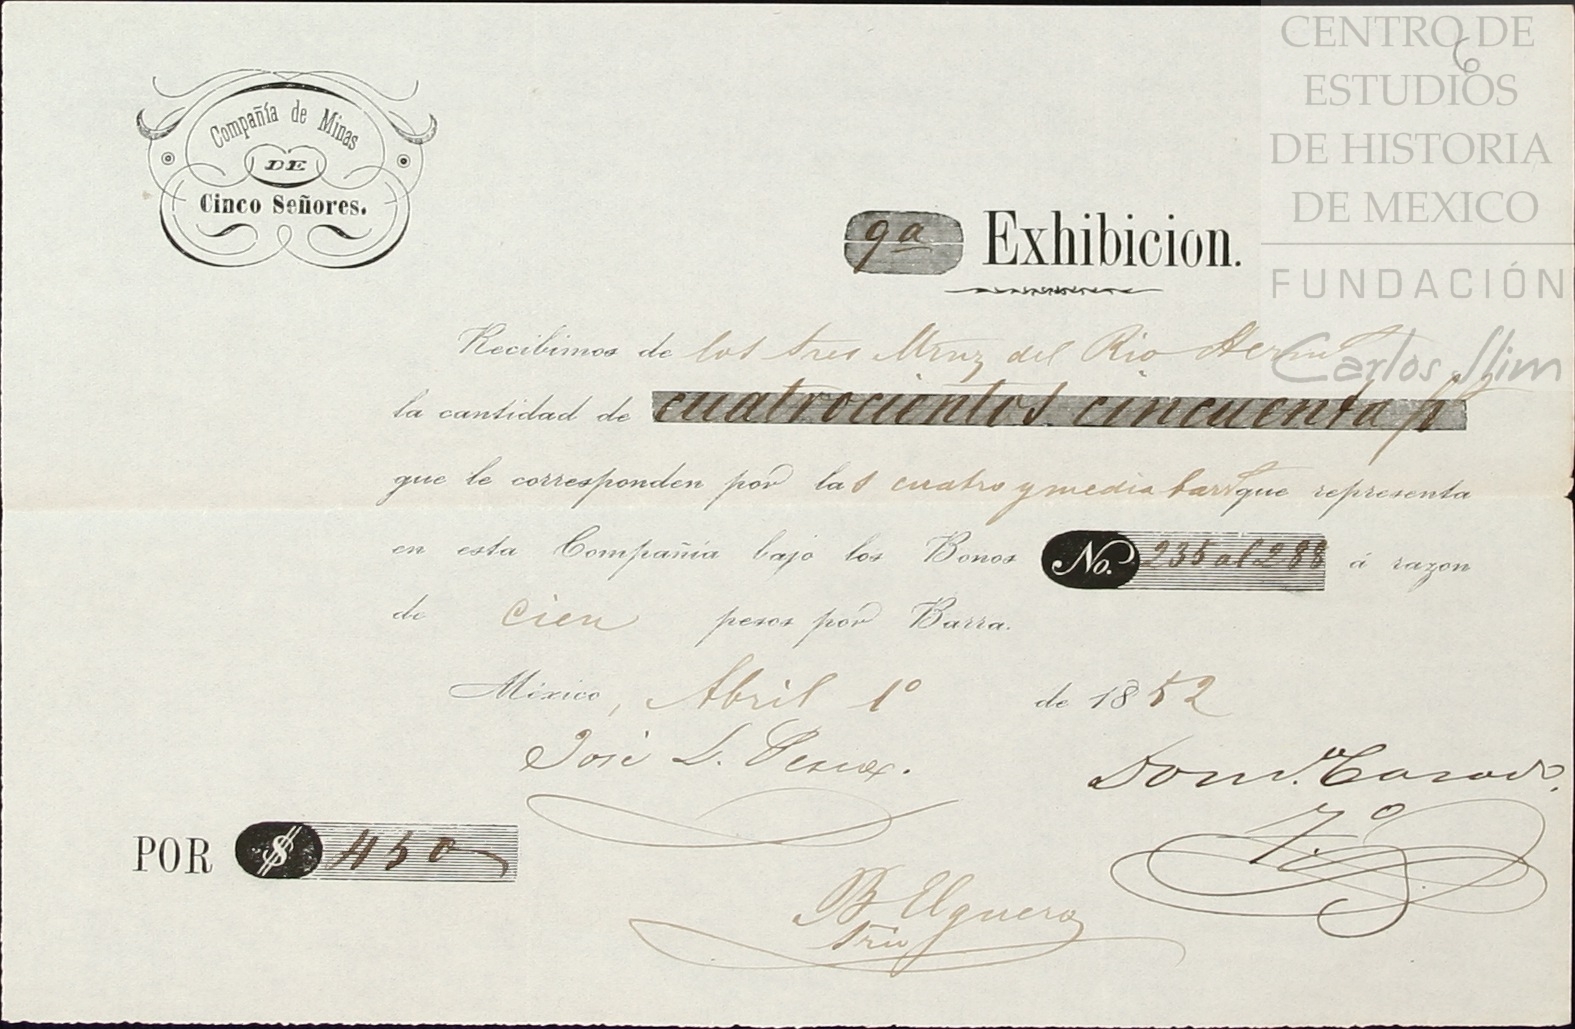 CENTRO DE
ESTUDIOS
DE HISTORIA
DE MEXICO
FUNDACIÓN
Carlos Slim
6
Compañía de Minas
DE
Cinco Señores.
9a Exhibicion.
Recibimos de los tres Mrnz del Rio Herm
la cantidad de cuatrocientos cincuenta p
que le corresponden por las cuatro y media barr que representa
en esta Compañía bajo los Bonos No. 235 al 288 á razon
de cien pesos por Barra.
México, Abril 1o de 1852
José L.
POR $ 450
B Elguero
Srio